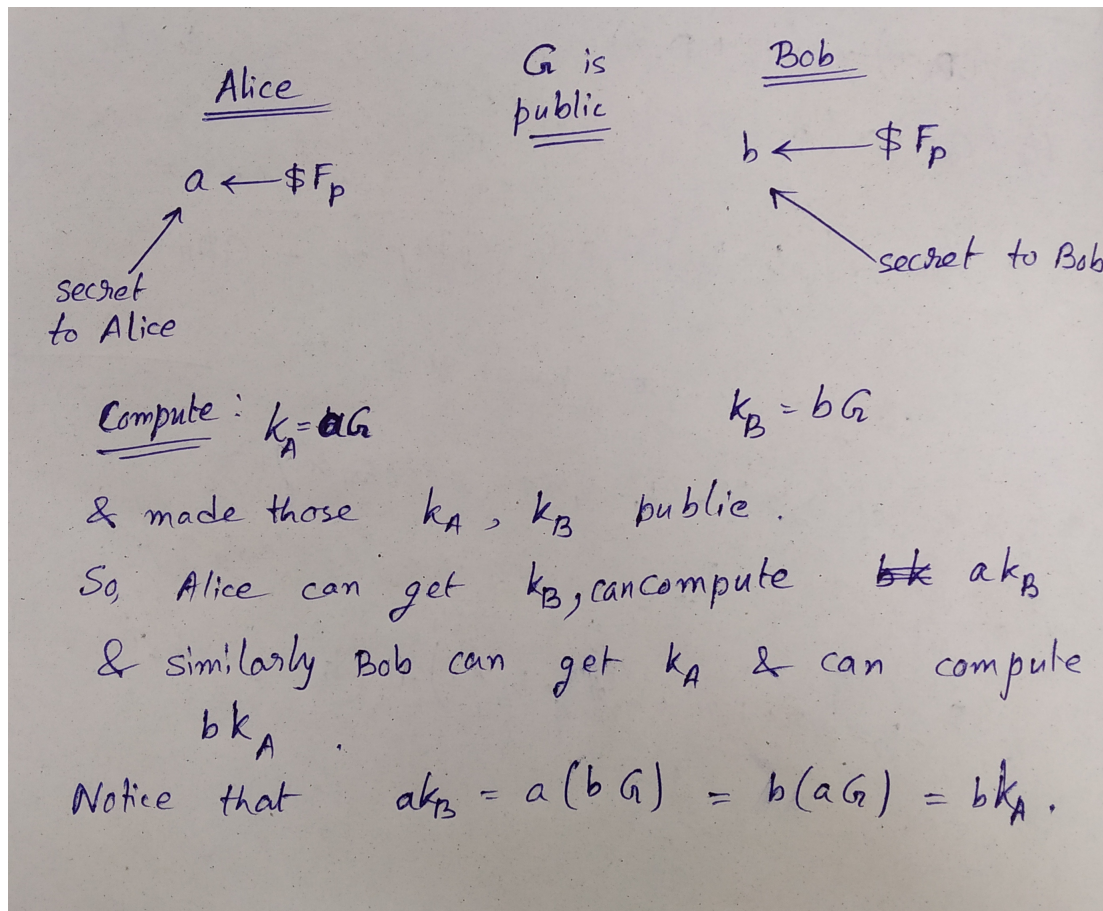 Alice
G is
public
Bob
a ← $ Fp
b ← $ Fp
secret
to Alice
secret to Bob
Compute : kA = aG
kB = bG
& made those kA , kB public .
So, Alice can get kB, can compute akB
& similarly Bob can get kA & can compute
bkA .
Notice that akB = a(bG) = b(aG) = bkA .